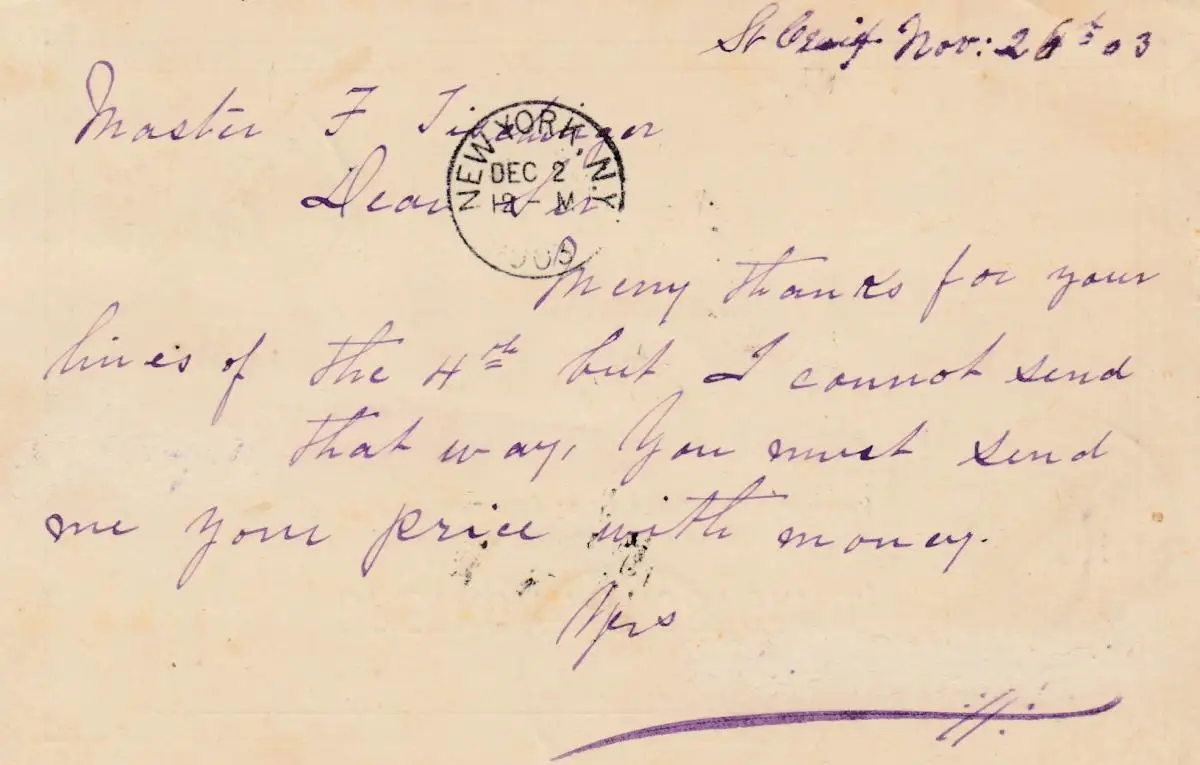 St Croix Nov: 26th 03
Master F
Dear Sir
NEW YORK. N.Y.
DEC 2
12 - M
Merry thanks for your
lines of the 4th but I cannot send
that way, You must send
me your price with money.
Yrs